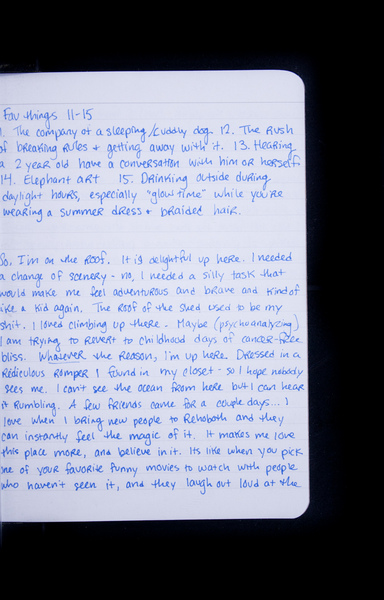 Fav things 11-15
1. The company of a sleeping/cuddly dog 12. The Rush
of breaking rules + getting away with it. 13. Hearing
a 2 year old have a conversation with him or herself
14. Elephant art 15. Drinking outside during
daylight hours, especially "glow time" while you're
wearing a summer dress + braided hair.
So, I'm on the roof. It is delightful up here. I needed
a change of scenery - no, I needed a silly task that
would make me feel adventurous and brave and kind of
like a kid again. The roof of the shed used to be my
shit. I loved climbing up there. Maybe (psychoanalyzing)
I am trying to revert to childhood days of cancer-free
bliss. Whatever the reason, I'm up here. Dressed in a
Rediculous romper I found in my closet - so I hope nobody
sees me. I can't see the ocean from here but I can hear
it rumbling. A few friends came for a couple days... I
love when I bring new people to Rehoboth and they
can instantly feel the magic of it. It makes me love
this place more, and believe in it. Its like when you pick
one of your favorite funny movies to watch with people
who haven't seen it, and they laugh out loud at the